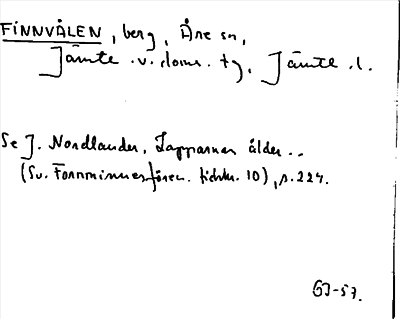 FINNVÅLEN, berg, Åre sn,
Jämte. v. doms. tg, Jämtl. l.
Se J. Nordlander, Lapparnas ålder..
(Sv. Fornminnesfören. tidskr. 10), s. 224.
GJ-57.